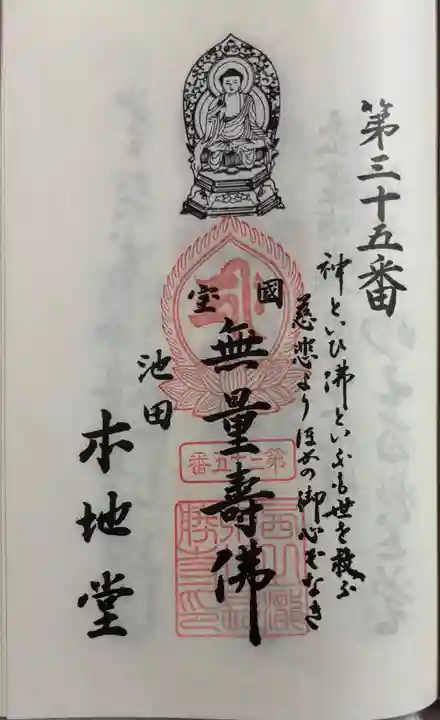 第三十五番
神といひ佛といふも世を救ふ
慈悲よりほかの御心ぞなき
國宝
無量壽佛
第三十五番
池田
本地堂